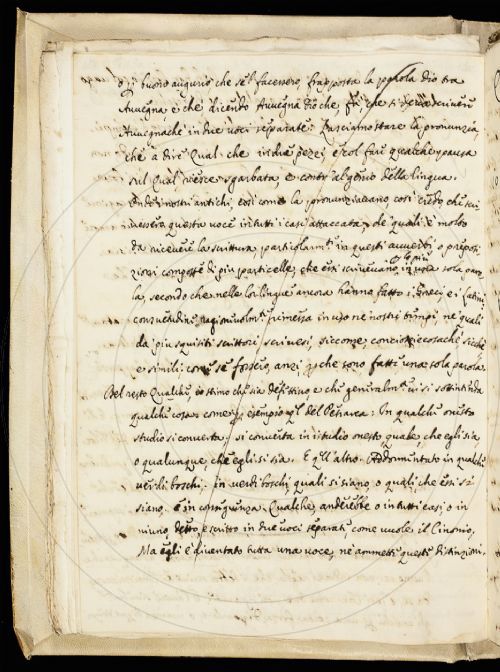 buono augurio che se'l facessero, frapposta la parola dio tra
Auuegna, e che dicendo Auuegna Dio che,
Auuegnache in due voci separate. Lasciamo stare la pronunzia,
che a dire Qual che in due pezzi e col fare qualche pausa
sul Qual riesce sgarbata, e contr'al genio della lingua.
nostri antichi, così come la pronunziavano, così credo che
questa voce in tutti i casi attaccata, de' quali è molto
da ricevere la scrittura, particolarm.te in questi auuerbi o preposi
zioni composte di più particelle, che essi scriueuano in una sola paro
la, secondo che nelle lor lingue ancora hanno fatto i Greci e i Latini
consuetudine ragioneuolm.te rimessa in uso ne' nostri tempi, ne' quali
da' più squisiti scrittori scriuesi, siccome, conciossiecosachè, sicchè
e simili, come se fossero, anzi perche sono fatti una sola parola.
Del resto Qualche, io stimo che sia difettiuo, e che generalm.te ui si sottintenda
qualche cosa: come per esempio q.l del Petrarca: In qualche onesto
studio si conuerta, si conuerta in istudio onesto, quale, che egli sia
o qualunque, che egli si sia. E q.ll'altro. Addormentato in qualche
uerdi boschi. in uerdi boschi, quali si siano, o quali, che essi si
siano. e in conseguenza Qualche, anderebbe o in tutti casi, o in
niuno, detto, e scritto in due voci separate, come vuole il Cinonio,
Ma egli è diuentato tutta una uoce, nè ammette queste distinzioni.